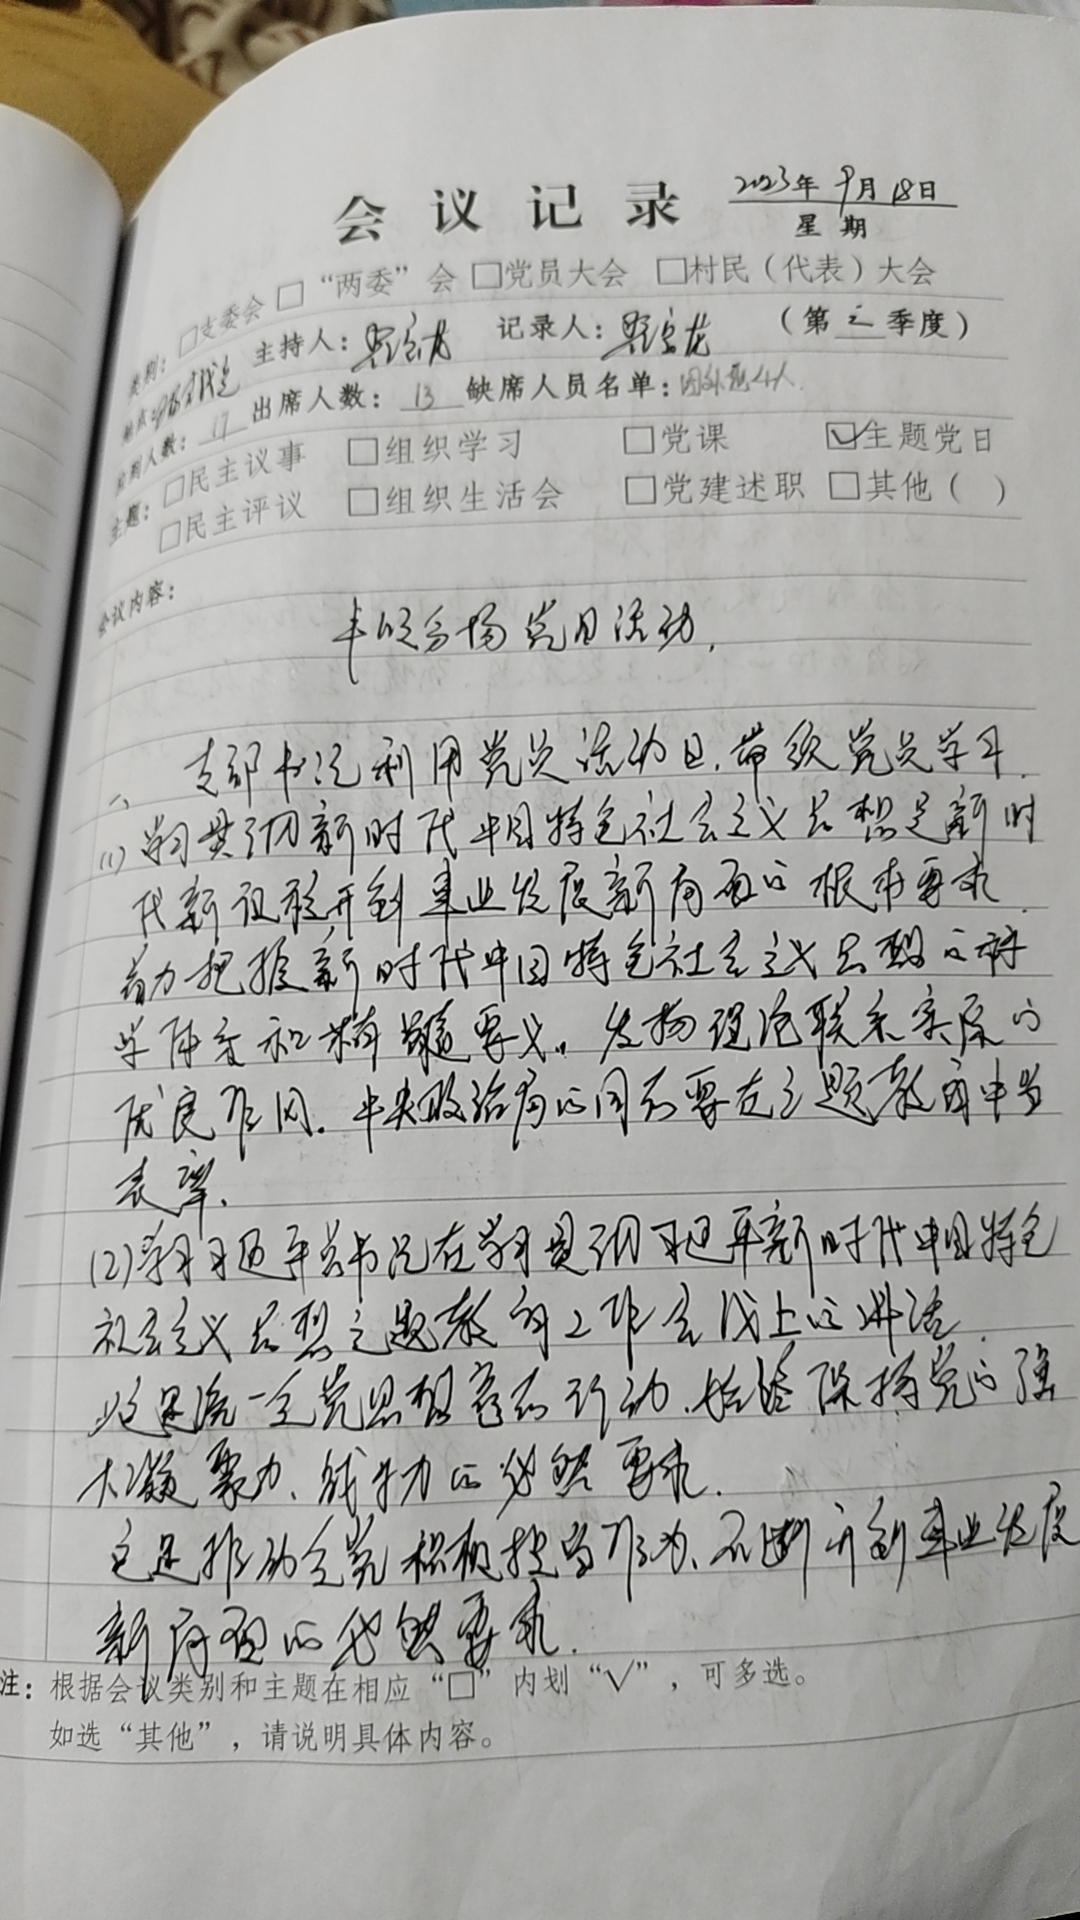 会议记录 2023年9月18日
星期
类别：□支委会 □“两委”会 □党员大会 □村民（代表）大会
地点： 主持人： 记录人： （第三季度）
应到人数：17 出席人数：13 缺席人员名单：因外出4人.
主题：□民主议事 □组织学习 □党课 ☑主题党日
□民主评议 □组织生活会 □党建述职 □其他（ ）
会议内容：
分场党日活动.
一、支部书记利用党员活动日.带领党员学习.
(1)学习贯彻新时代中国特色社会主义思想是新时
代新征程开创事业发展新局面的根本要求.
着力把握新时代中国特色社会主义思想的科
学体系和精髓要义。发扬理论联系实际的
优良作风.中央政治局的同志要在主题教育中当
表率.
(2)学习习近平总书记在学习贯彻习近平新时代中国特色
社会主义思想主题教育工作会议上的讲话.
这是统一全党思想意志行动、始终保持党的强
大凝聚力、战斗力的必然要求.
这是推动全党积极担当作为、不断开创事业发展
新局面的必然要求.
注：根据会议类别和主题在相应“□”内划“√”，可多选。
如选“其他”，请说明具体内容。